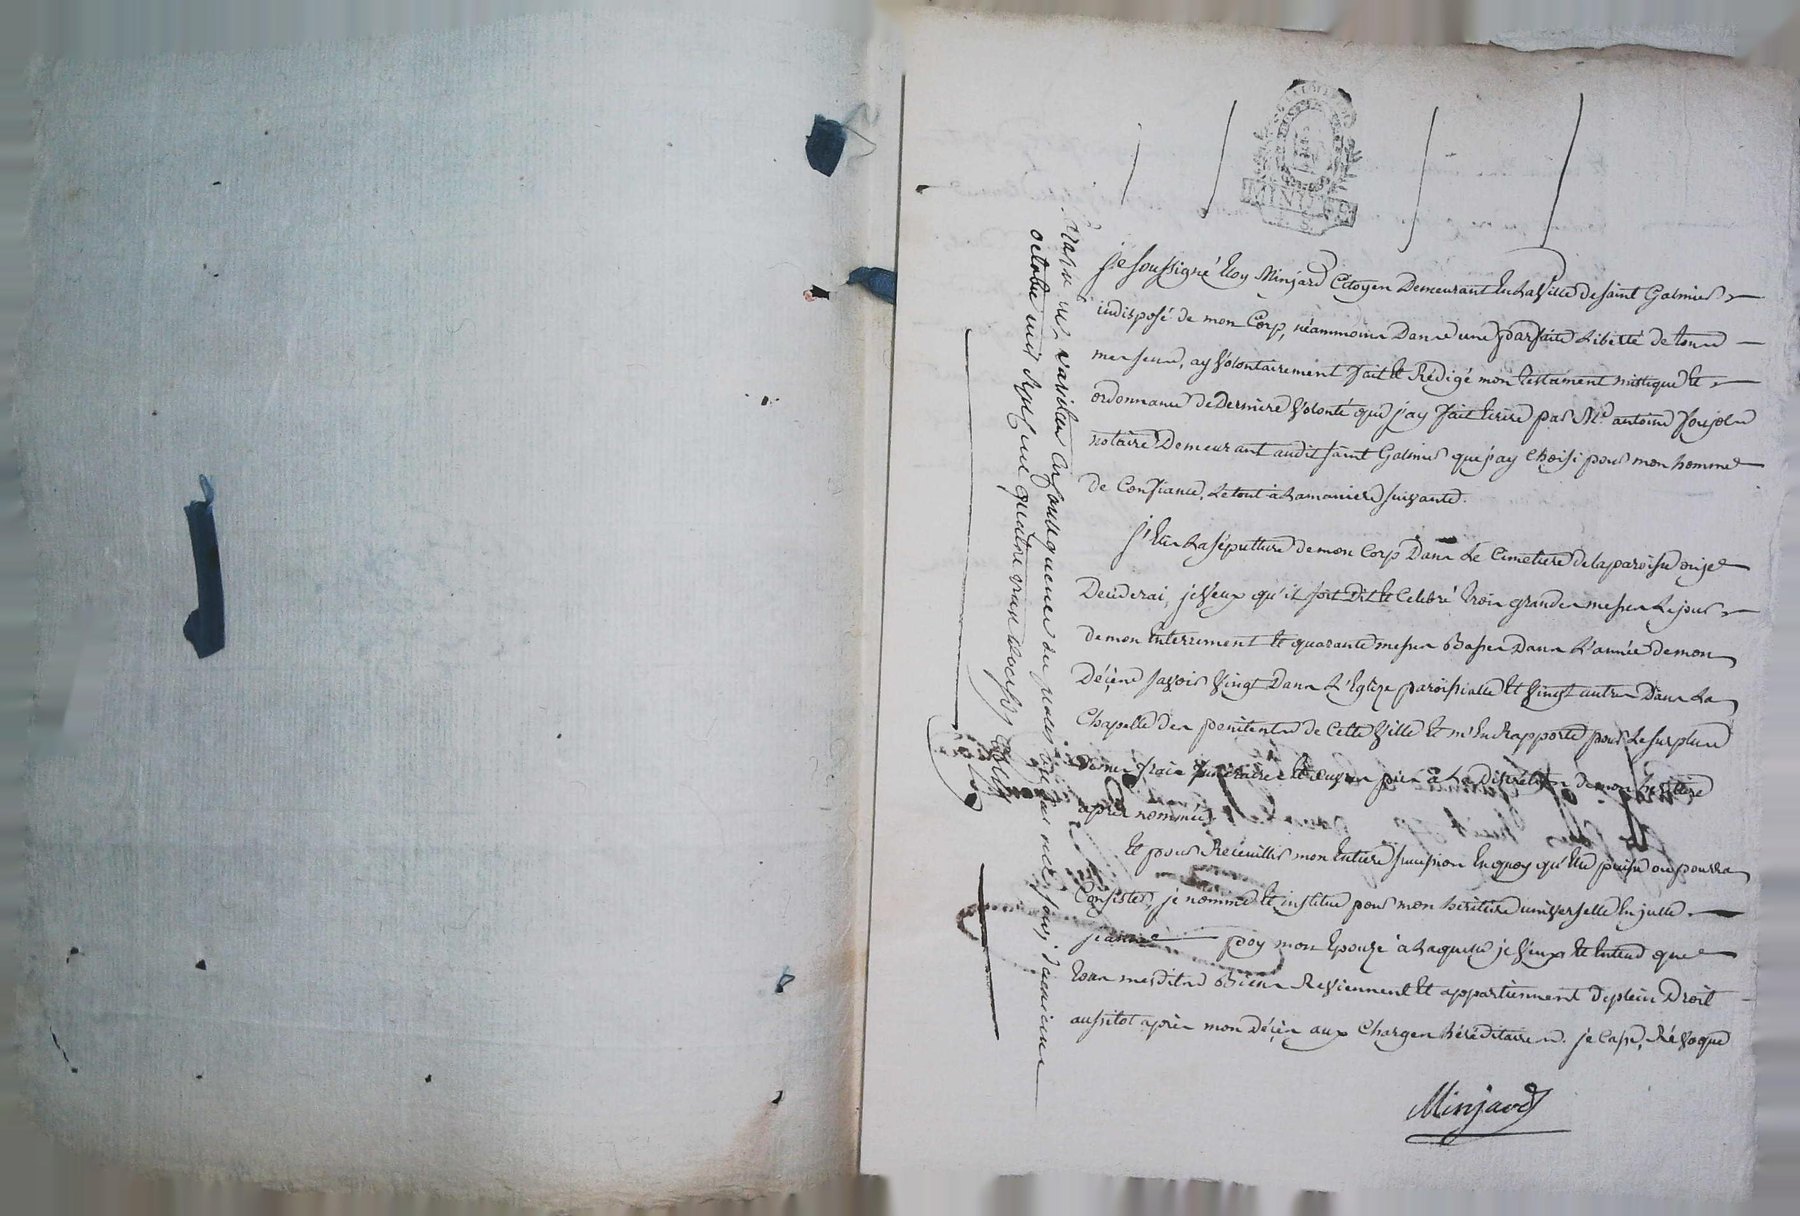 MINUTE
je soussigné Eloy Minjard Citoyen Demeurant En La Ville de saint Galmier
indisposé de mon Corp, néammoins Dans une parfaite Liberté de tous
mes sens, ay Volontairement fait Et Rédigé mon testament mistique Et
ordonnance de Derniere Volonté que j'ay fait Ecrire par Me antoine
notaire Demeurant audit saint Galmier que j'ay Choisi pour mon homme
de Confiance, Le tout à La maniere suivante.
j'Elis La sépulture de mon Corp Dans Le Cimetiere de la paroisse ou je
Décéderai, je Veux qu'il soit Dit Et Celebré trois grandes messes Le jour
de mon Enterrement Et quarante messes Basses Dans L'année de mon
Décès savoir Vingt Dans L'Eglize paroissialle Et Vingt autres Dans La
Chapelle des penitents de Cette Ville Et m'En Rapporte pour Le surplus
De mes frais funeraires Et œuvres pies à La Discrétion de mon héritiere
après nommée.
Et pour Recüeillir mon Entiere succession En quoy qu'Elle puisse ou pourra
Consister, je nomme Et institue pour mon héritiere universelle En jcelle
jeanne poy mon Epouze à Laquelle je Veux Et Entend que
tous mesdits Biens Reviennent Et appartiennent de plein Droit
aussitot après mon Décès aux Charges héréditaires. je Casse, Révoque
Minjard
ne Varietur En Conséquence du procès verbal de ce jour
octobre mil sept cent quatre vingt